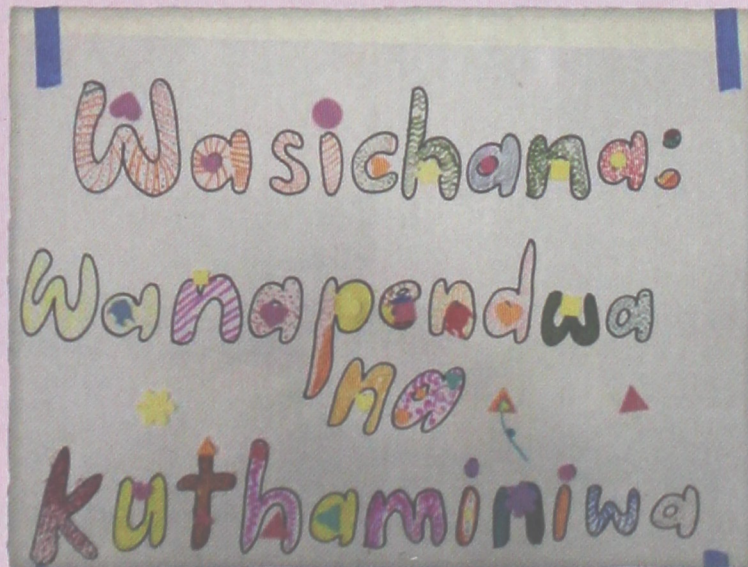 Wasichana:
Wanapendwa
na
kuthaminiwa